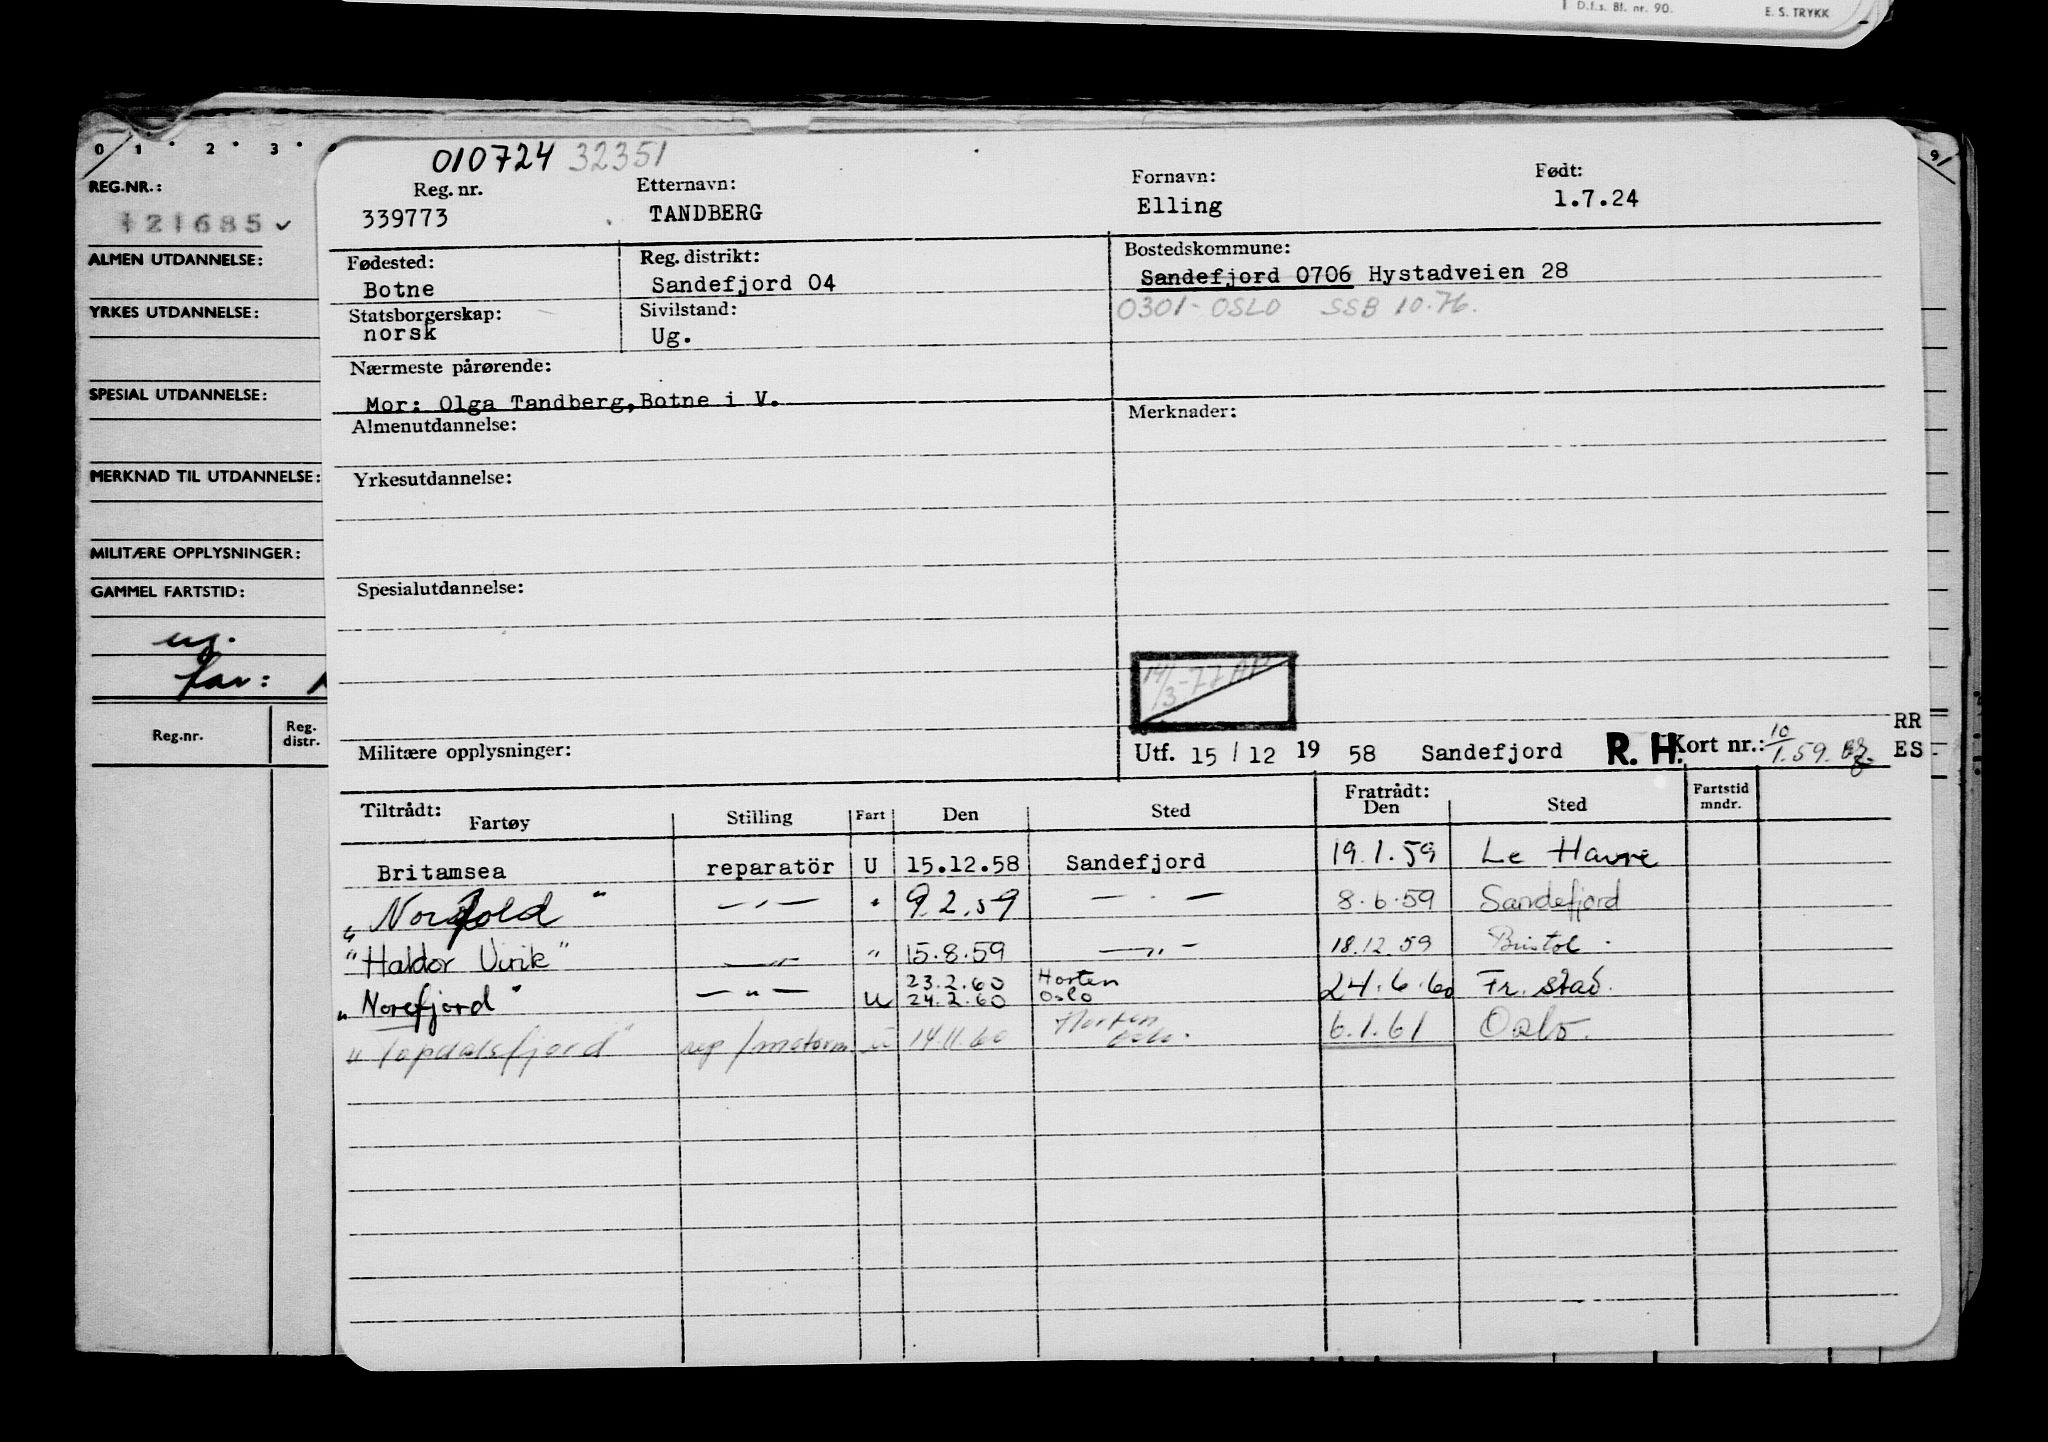 D.f.s. Bl. nr. 90. E. S. TRYKK
0 1 2 3 9
REG.NR.:
121685
ALMEN UTDANNELSE:
YRKES UTDANNELSE:
SPESIAL UTDANNELSE:
MERKNAD TIL UTDANNELSE:
MILITÆRE OPPLYSNINGER:
GAMMEL FARTSTID:
ug.
far:
Reg.nr. Reg. distr.
010724 32351
Reg. nr. Etternavn: Fornavn: Født:
339773 TANDBERG Elling 1.7.24
Fødested: Reg. distrikt: Bostedskommune:
Botne Sandefjord 04 Sandefjord 0706 Hystadveien 28
Statsborgerskap: Sivilstand: 0301 - OSLO SSB 10.76.
norsk Ug.
Nærmeste pårørende:
Mor: Olga Tandberg, Botne i V.
Almenutdannelse: Merknader:
Yrkesutdannelse:
Spesialutdannelse:
14/3-77
Militære opplysninger: Utf. 15 / 12 19 58 Sandefjord R. H. Kort nr.: 10/1.59. RR
ES
Tiltrådt: Fratrådt: Fartstid mndr.
Fartøy Stilling Fart Den Sted Den Sted
Britamsea reparatör U 15.12.58 Sandefjord 19.1.59 Le Havre
"Norfold" —"— " 9.2.59 — " — 8.6.59 Sandefjord
"Haldor Virik" —"— " 15.8.59 —"— 18.12.59 Bristol
"Norefjord" —"— U 23.2.60 Horten 24.6.60 Fr.stad.
24.2.60 Oslo
"Topdalsfjord" rep/motorm. U 14.11.60 Horten Oslo. 6.1.61 Oslo.